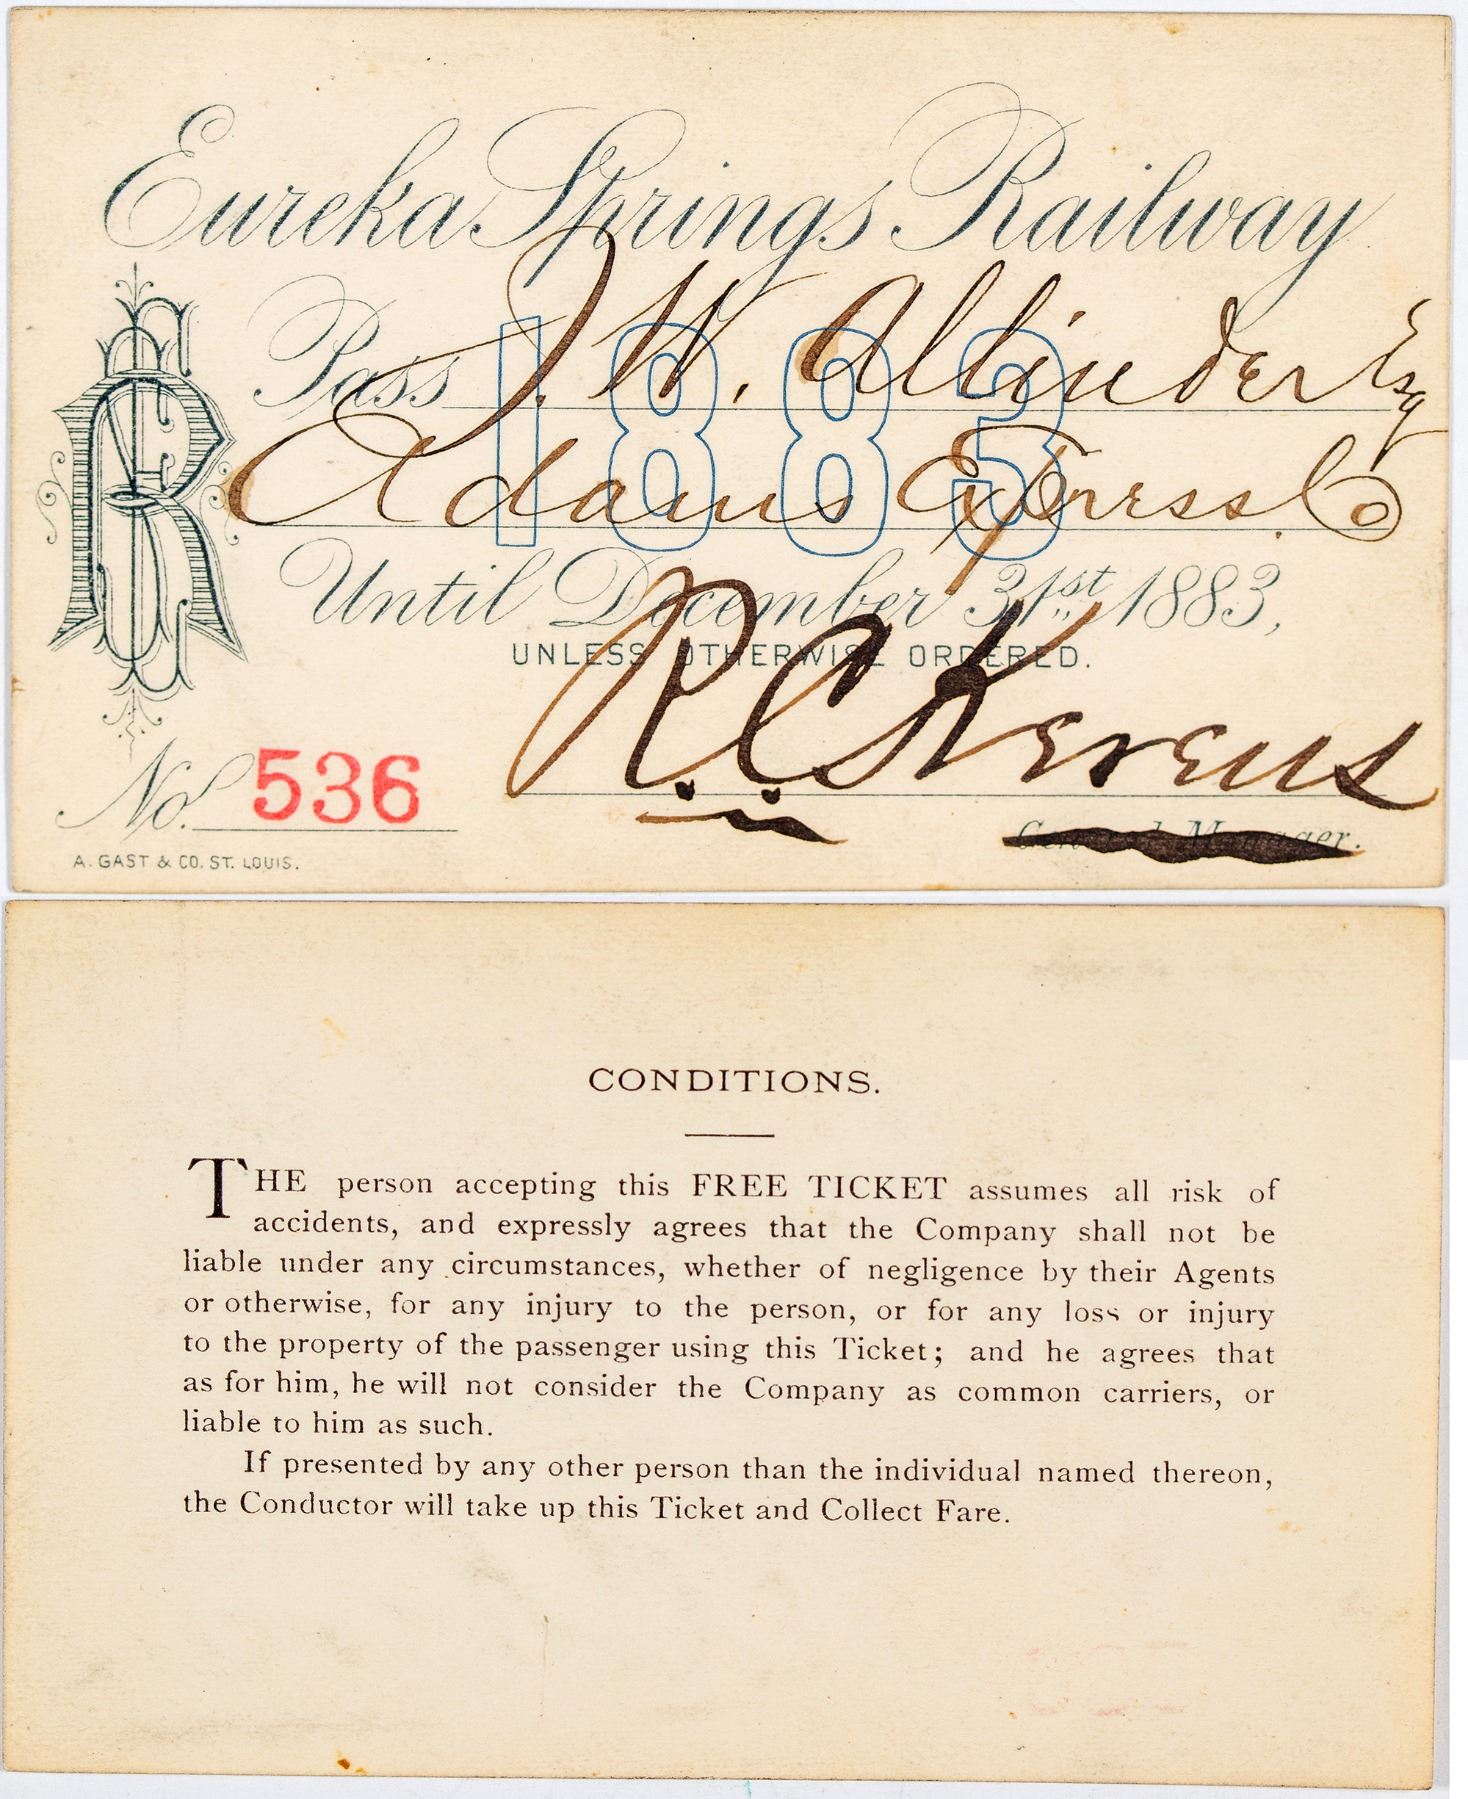 Eureka Springs Railway
Pass J. W. Allinder Esq
1883
Adams Express Co
Until December 31st 1883,
UNLESS OTHERWISE ORDERED.
R C Kerens
No. 536
General Manager.
A. GAST & CO. ST. LOUIS.
CONDITIONS.
THE person accepting this FREE TICKET assumes all risk of
accidents, and expressly agrees that the Company shall not be
liable under any circumstances, whether of negligence by their Agents
or otherwise, for any injury to the person, or for any loss or injury
to the property of the passenger using this Ticket; and he agrees that
as for him, he will not consider the Company as common carriers, or
liable to him as such.
If presented by any other person than the individual named thereon,
the Conductor will take up this Ticket and Collect Fare.